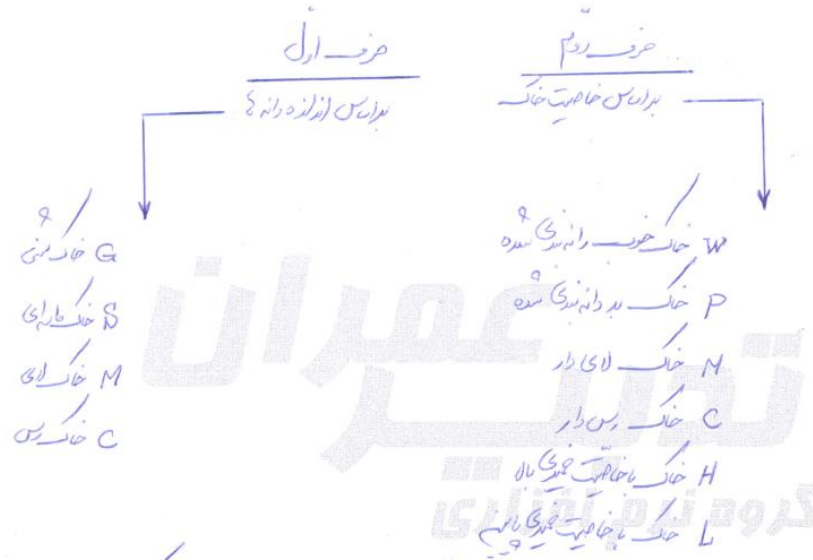 حرف اول
بر اساس اندازه دانه ها
G خاک شنی
S خاک ماسه ای
M خاک لای
C خاک رس
حرف دوّم
بر اساس خاصیت خاک
W خاک خوب دانه بندی شده
P خاک بد دانه بندی شده
M خاک لای دار
C خاک رس دار
H خاک با خاصیت خمیری بالا
L خاک با خاصیت خمیری پایین
تدبیر عمران
گروه نرم افزاری